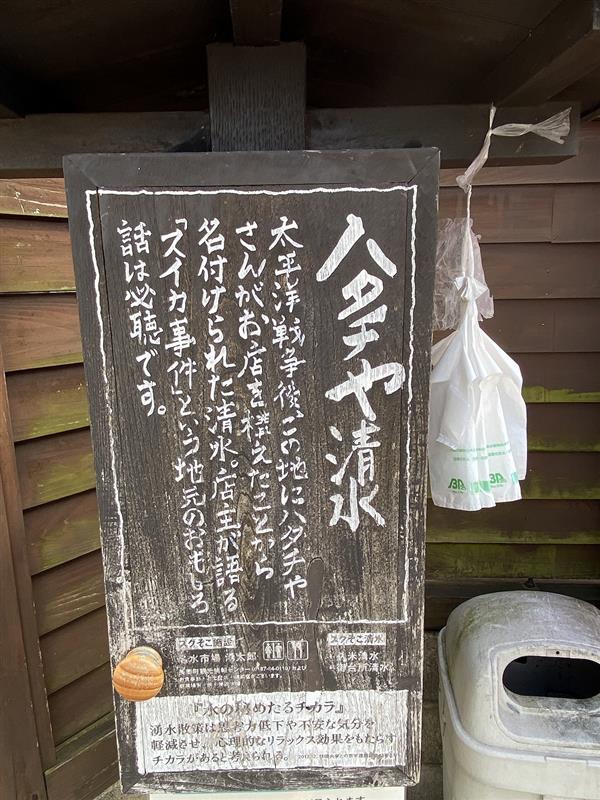 ハタチや清水
太平洋戦争後、この地にハタチや
さんがお店を構えたことから
名付けられた清水。店主が語る
「スイカ事件」という地元のおもしろ
話は必聴です。
スグそこ施設
スグそこ清水
水市場 湧太郎
久米清水
御台所清水
『水の秘めたるチカラ』
湧水散策は思考力低下や不安な気分を
軽減させ、心理的なリラックス効果をもたらす
チカラがあると考えられる。